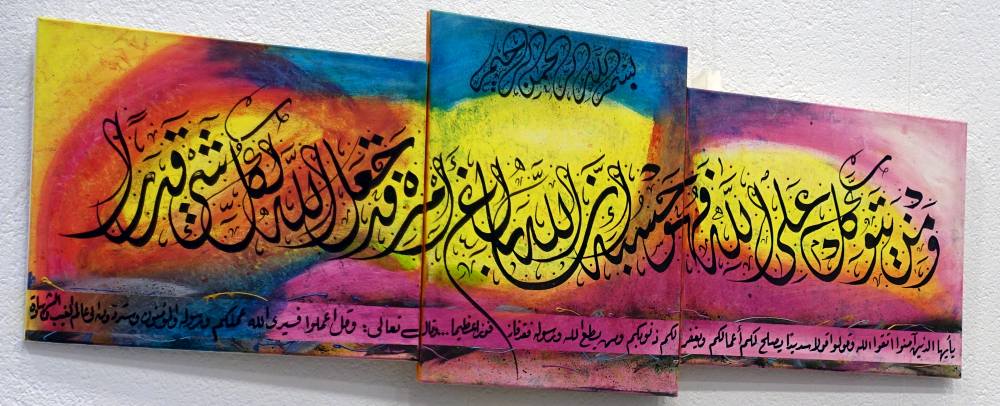 بسم الله الرحمن الرحيم
ومن يتوكل على الله فهو حسبه إن الله بالغ أمره قد جعل الله لكل شيء قدرا
يأيها الذين آمنوا اتقوا الله وقولوا قولا سديدا يصلح لكم أعمالكم ويغفر لكم ذنوبكم ومن يطع الله ورسوله فقد فاز فوزا عظيما ... قال تعالى: وقل اعملوا فسيرى الله عملكم ورسوله والمؤمنون وستردون إلى عالم الغيب والشهادة